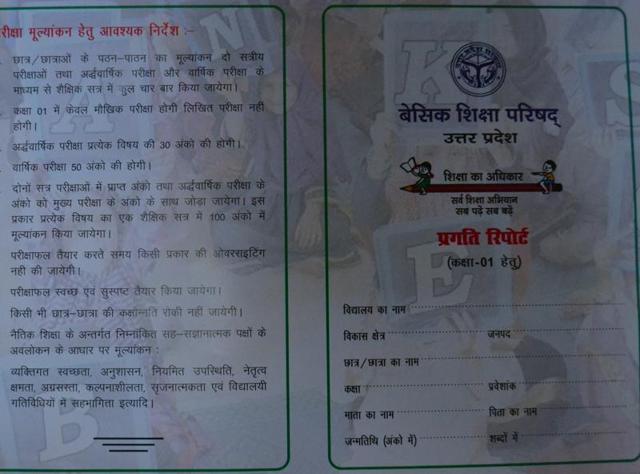 परीक्षा मूल्यांकन हेतु आवश्यक निर्देश :-
छात्र/छात्राओं के पठन-पाठन का मूल्यांकन दो सत्रीय
परीक्षाओं तथा अर्द्धवार्षिक परीक्षा और वार्षिक परीक्षा के
माध्यम से शैक्षिक सत्र में कुल चार बार किया जायेगा।
कक्षा 01 में केवल मौखिक परीक्षा होगी लिखित परीक्षा नहीं
होगी।
अर्द्धवार्षिक परीक्षा प्रत्येक विषय की 30 अंको की होगी।
वार्षिक परीक्षा 50 अंको की होगी।
दोनों सत्र परीक्षाओं में प्राप्त अंको तथा अर्द्धवार्षिक परीक्षा के
अंको को मुख्य परीक्षा के अंको के साथ जोड़ा जायेगा। इस
प्रकार प्रत्येक विषय का एक शैक्षिक सत्र में 100 अंको में
मूल्यांकन किया जायेगा।
परीक्षाफल तैयार करते समय किसी प्रकार की ओवरराइटिंग
नही की जायेगी।
परीक्षाफल स्वच्छ एवं सुस्पष्ट तैयार किया जायेगा।
किसी भी छात्र-छात्रा की कक्षोन्नति रोकी नहीं जायेगी।
नैतिक शिक्षा के अन्तर्गत निम्नांकित सह-सज्ञानात्मक पक्षों के
अवलोकन के आधार पर मूल्यांकन :
व्यक्तिगत स्वच्छता, अनुशासन, नियमित उपस्थिति, नेतृत्व
क्षमता, अग्रसरता, कल्पनाशीलता, सृजनात्मकता एवं विद्यालयी
गतिविधियों में सहभागिता इत्यादि।
बेसिक शिक्षा परिषद्
उत्तर प्रदेश
शिक्षा का अधिकार
सर्व शिक्षा अभियान
सब पढ़ें सब बढ़ें
प्रगति रिपोर्ट
(कक्षा-01 हेतु)
विद्यालय का नाम
विकास क्षेत्र जनपद
छात्र/छात्रा का नाम
कक्षा प्रवेशांक
माता का नाम पिता का नाम
जन्मतिथि (अंको में) शब्दों में